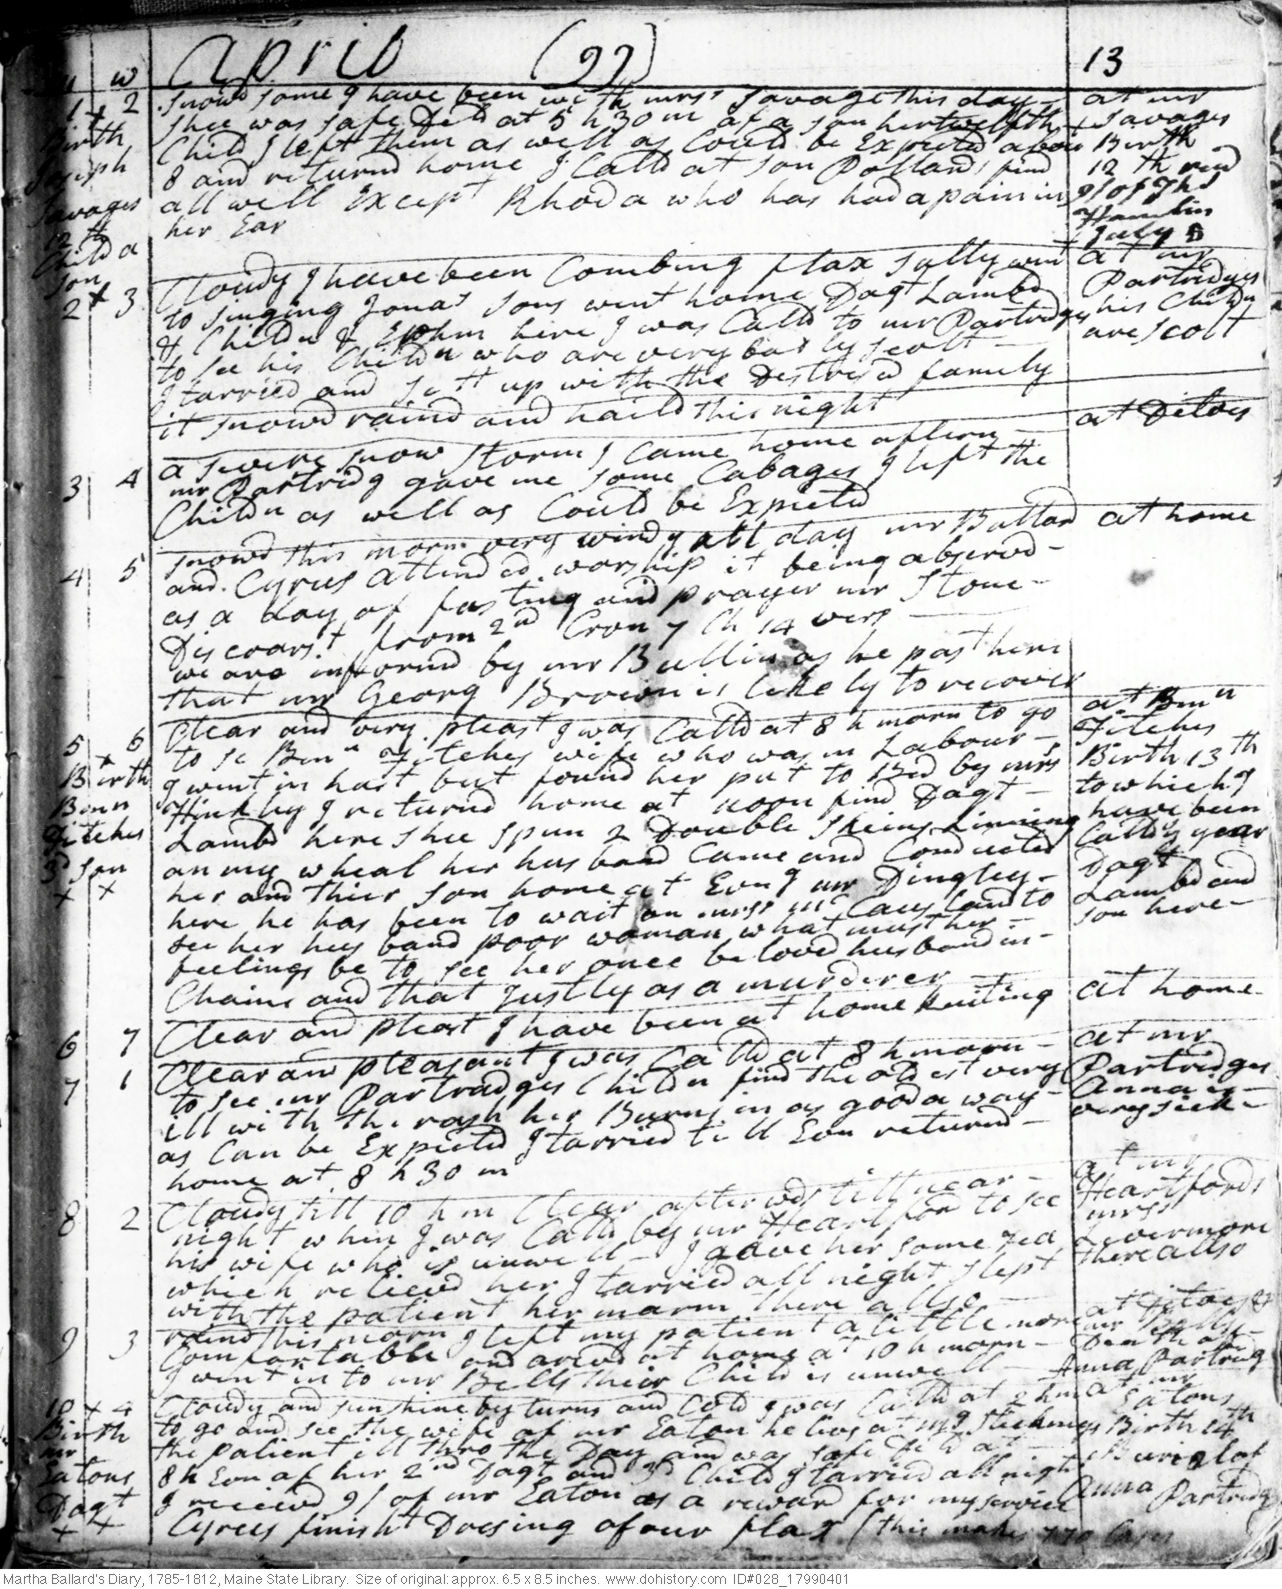 m w April (99) 13
1 + 2 Snowd some I have been with mrss Savage this day at mr
shee was safe Deld at 5 h 30 m of a son her twelfth + Savages
Birth Child I left them as well as Could be Expected about Birth
Joseph 8 and returnd home I Calld at son Pollards find 12th
Savages all well Except Rhoda who has had a pain in 9/ of Ths
12th her Ear Hamlin
Child a July
son
2 + 3 Cloudy I have been Combing flax Sally went at mr
to singing Jonas sons went home Dagt Lambd Partridges
& Childn & Ephm here I was Calld to mr Partridges his Childn
to see his Childn who are very badly scolt are scolt
I tarried and sett up with the Destresd family
it snowd raind and haild this night
3 4 a severe snow storm I came home aftern at Ditoes
mr Partridg gave me some Cabages I left the
Childn as well as Could be Expected
4 5 snowd this morn very windy all day mr Ballard at home
and Cyrus attended worship it being abservd
as a day of fasting and prayer mr Stone
Discoarst from 2nd Cron 7 Ch 14 vers
we are informd by mr Bullin as he past here
that mr Georg Brown is likely to recover
5 + 6 Clear and very pleast I was Calld at 8 h morn to go at Bmn
Birth to se Bmn Fitches wife who was in Labour Fitches
Benn I went in hast but found her put to Bed by mrs Birth 13th
Fitches Hinkly I returnd home at noon find Dagt to which I
3d son Lambd here shee spun 2 Double skeins Linning have been
x x on my wheal her husband Came and Conducted Calld year
her and thier son home at Evng mr Dingley Dagt
here he has been to wait on mrss mc Causland to Lambd and
see her husband poor woman what must her son here
feelings be to see her once beloved husband in
Chains and that Justly as a murderer
6 7 Clear and pleast I have been at home kniting at home
7 1 Clear and pleasant I was Calld at 8 h morn at mr
to see mr Partradges Childn find the oldest very Partridges
ill with the rash her Burns in as good a way Anna is
as Can be Expected I tarried till Evn returnd very sick
home at 8 h 30 m
8 2 Cloudy till 10 h m Clear afterwds till near at mr
night when I was Calld by mr Heartford to see Heartfords
his wife who is unwell I gave her some Tea mrss Livermore
which relievd her I tarried all night slept there allso
with the patient her marm there allso
9 3 raind this morn I left my patient a little more at Ditoes &
Comfortable and arivd at home at 10 h morn mr Bells
I went in to mr Bells thier Child is unwell Death of
Anna Partridg
10 + 4 Cloudy and sunshine by turns and Cold I was Calld at 2 h m at mr
Birth to go and see the wife of mr Eaton he lives at Eatons
mr the patient ill thro the Day and was safe Deld at Birth 14th
Eatons 8 h Evn of her 2nd Dagt and 3d Child I tarried all night Burial of
Dagt I receivd 9/ of mr Eaton as a reward for my service Anna Partridg
x x Cyrus finisht Dresing of our flax (this makes
Martha Ballard's Diary, 1785-1812, Maine State Library. Size of original: approx. 6.5 x 8.5 inches. www.dohistory.com ID#028_17990401